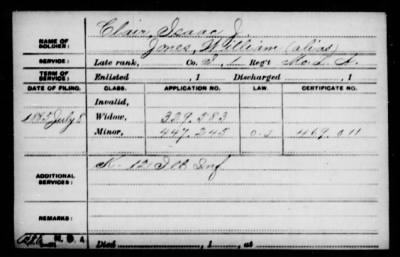 NAME OF SOLDIER: Clair, Isaac J.
Jones, William (alias)
SERVICE: Late rank, Co. I, 1 Reg't Mo. L. A.
TERM OF SERVICE: Enlisted , 1 Discharged , 1
DATE OF FILING. CLASS. APPLICATION NO. LAW. CERTIFICATE NO.
Invalid,
1885 July 8 Widow, 329.583
Minor, 447.245 469.011
ADDITIONAL SERVICES: K- 12 Ill Inf
REMARKS:
Died , 1 , at